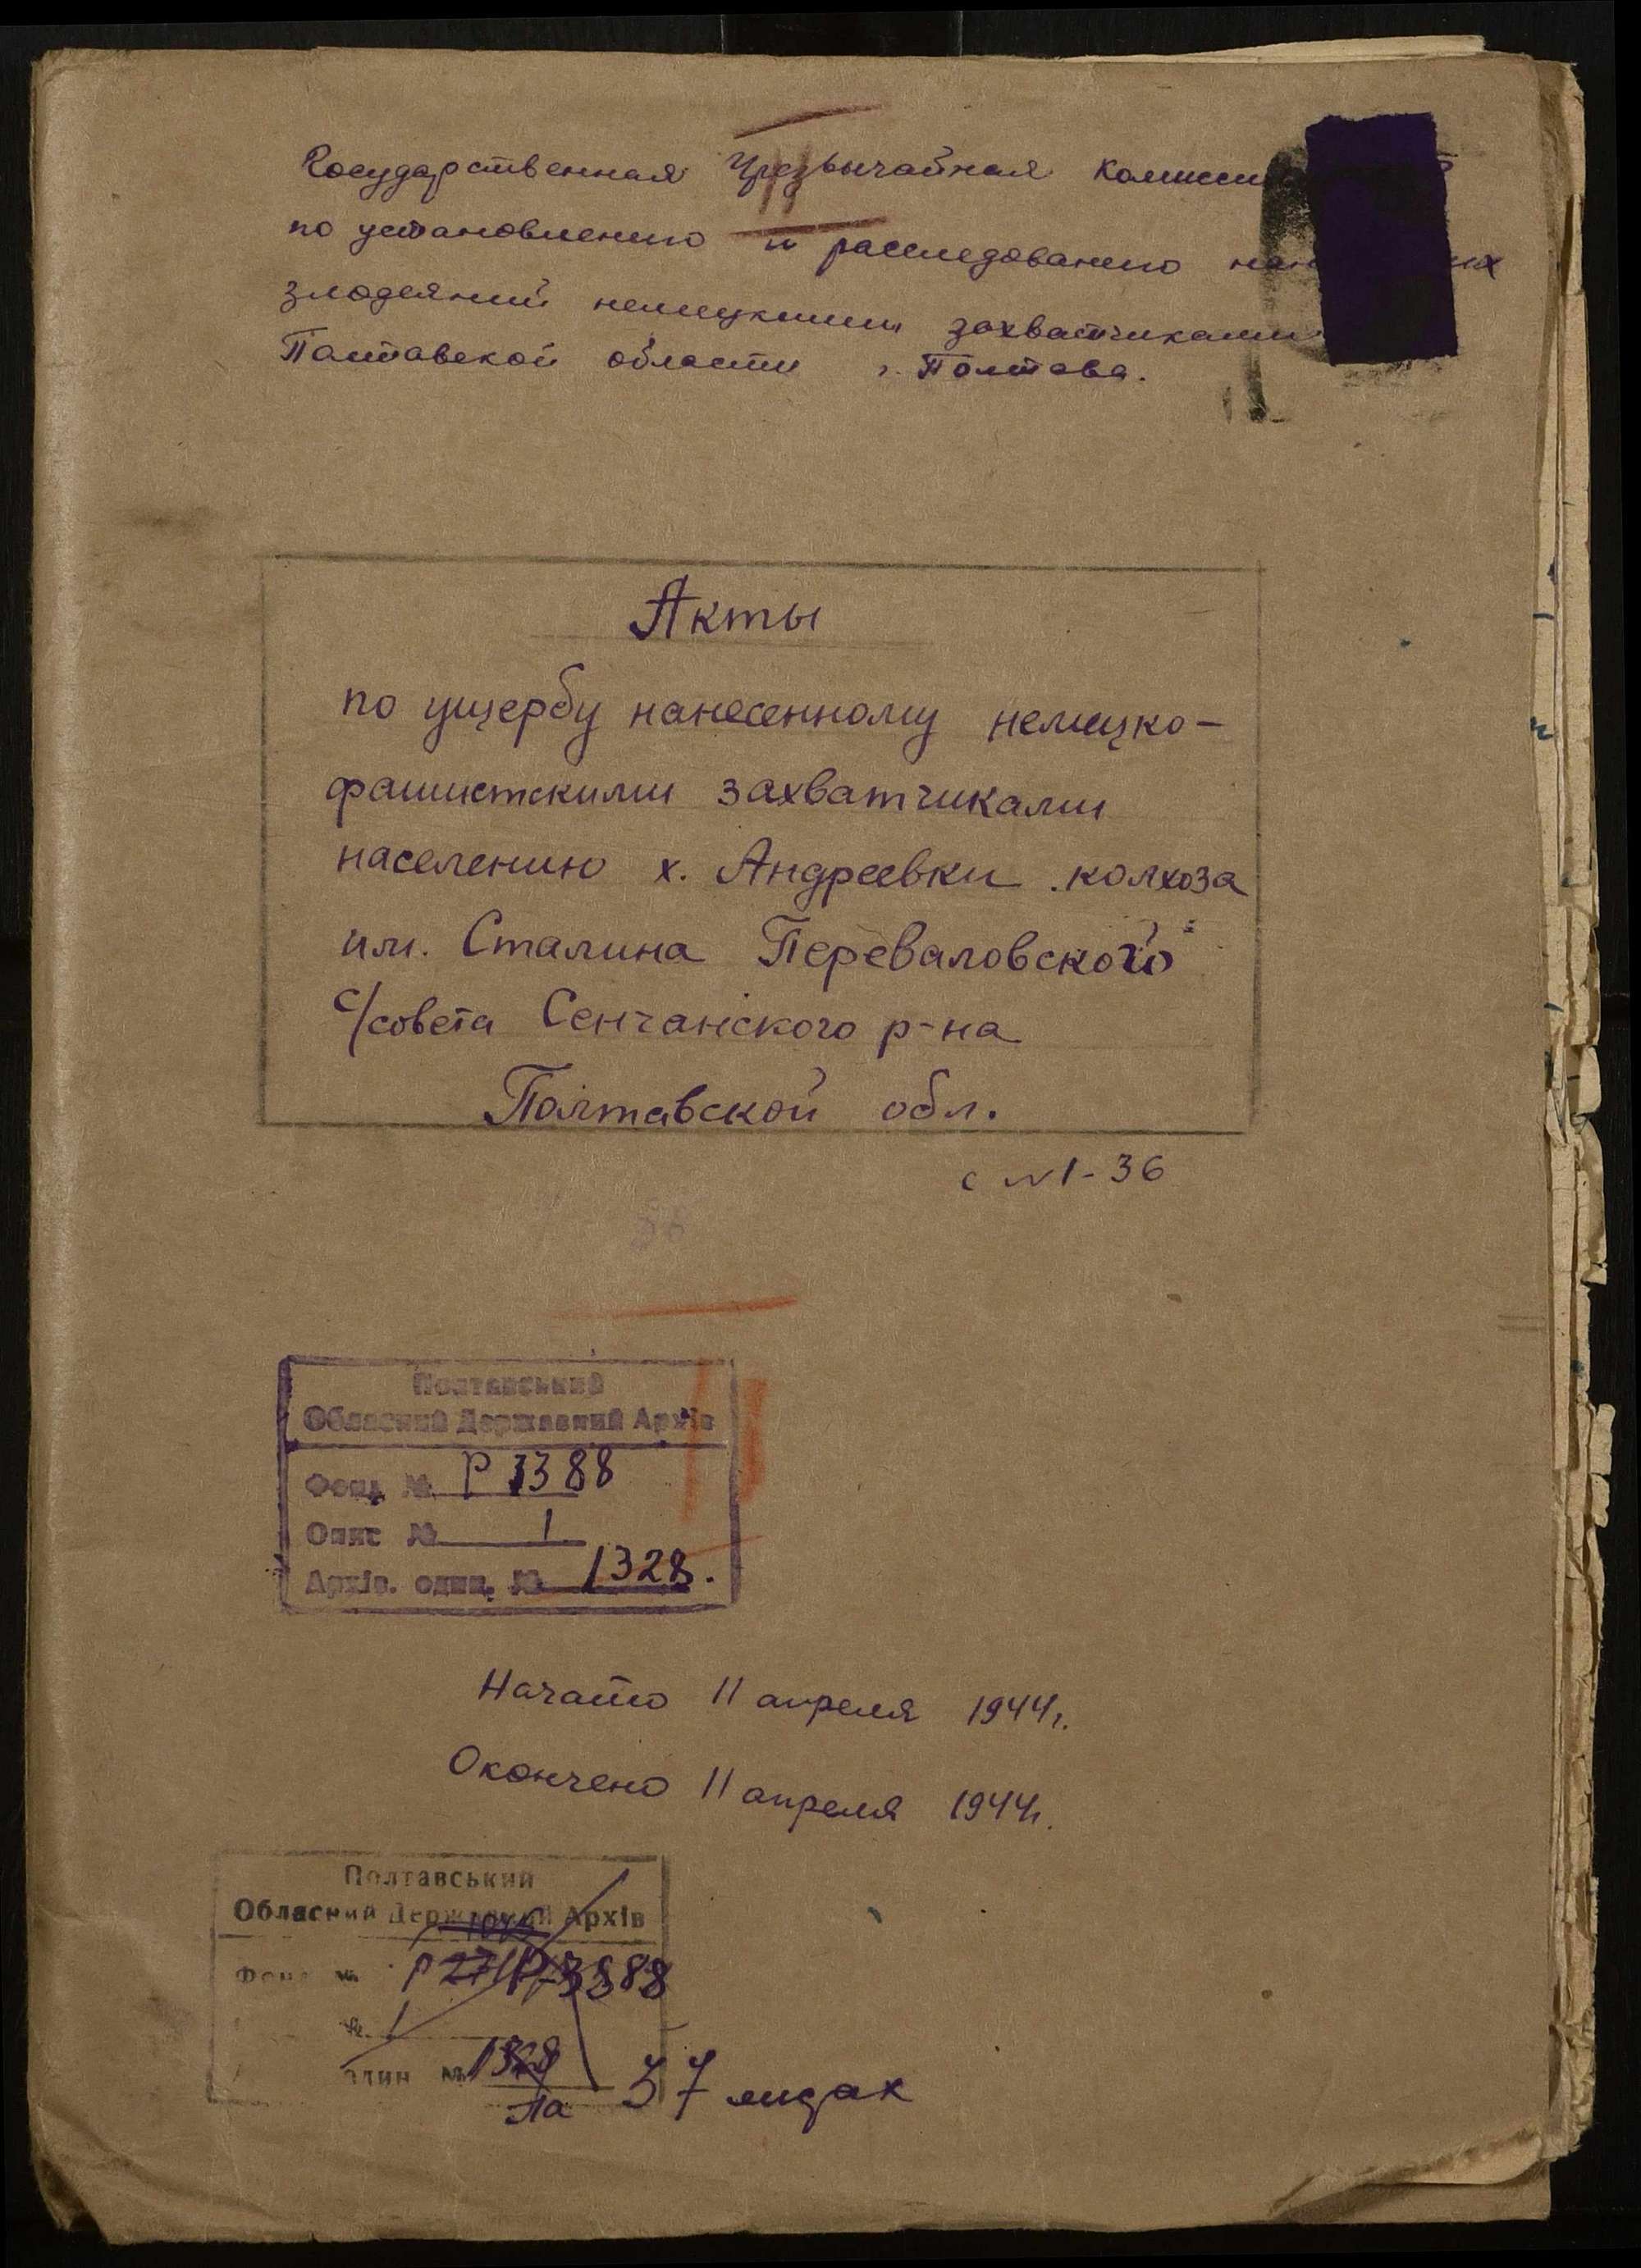 Государственная Чрезвычайная Комисси
по установлению и расследованию нан их
злодеяний немецкими захватчиками
Полтавской области г. Полтава.
Акты
по ущербу нанесенному немецко-
фашистскими захватчиками
населению х. Андреевки колхоза
им. Сталина Переваловского
с/совета Сенчанского р-на
Полтавской обл.
с №1-36
Полтавський
Обласний Державний Архів
Фонд № Р 3388
Опис № 1
Архів. один. № 1328.
Начато 11 апреля 1944г.
Окончено 11 апреля 1944г.
Полтавський
Обласний Державний Архів
Фонд № Р-3388
№ 1
один №
на 37 лицах